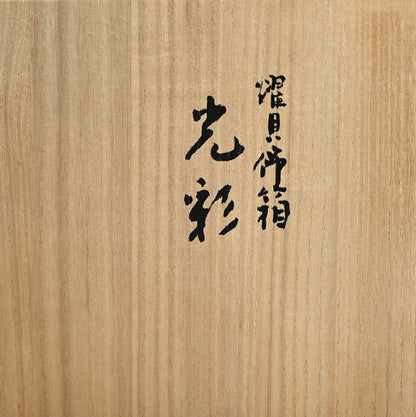 耀貝飾箱
光彩